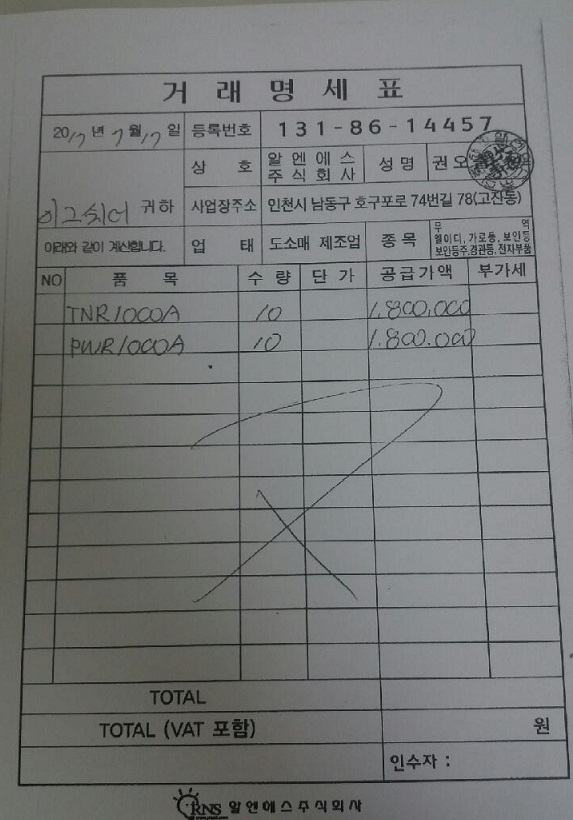 거래명세표
2017년 7월 17일 등록번호 131-86-14457
상 호 알엔에스 주식회사 성명 권오
귀하 사업장주소 인천시 남동구 호구포로 74번길 78(고잔동)
아래와 같이 계산합니다. 업 태 도소매 제조업 종목 무역
엘이디, 가로등, 보안등
보안등주, 경관등, 전자부품
NO 품 목 수 량 단 가 공급가액 부가세
TNR1000A 10 1,800,000
PWR1000A 10 1.800.000
TOTAL
TOTAL (VAT 포함) 원
인수자 :
RNS 알엔에스주식회사